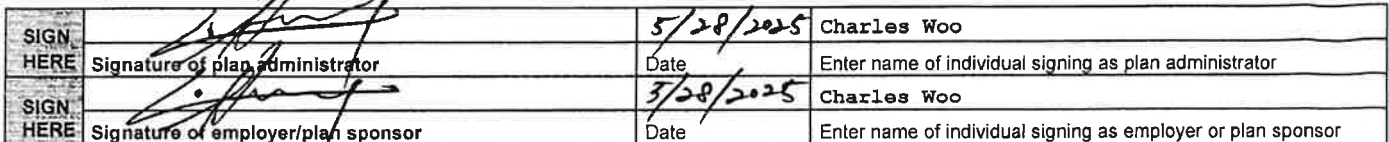 SIGN 5/28/2025 Charles Woo
HERE Signature of plan administrator Date Enter name of individual signing as plan administrator
SIGN 5/28/2025 Charles Woo
HERE Signature of employer/plan sponsor Date Enter name of individual signing as employer or plan sponsor